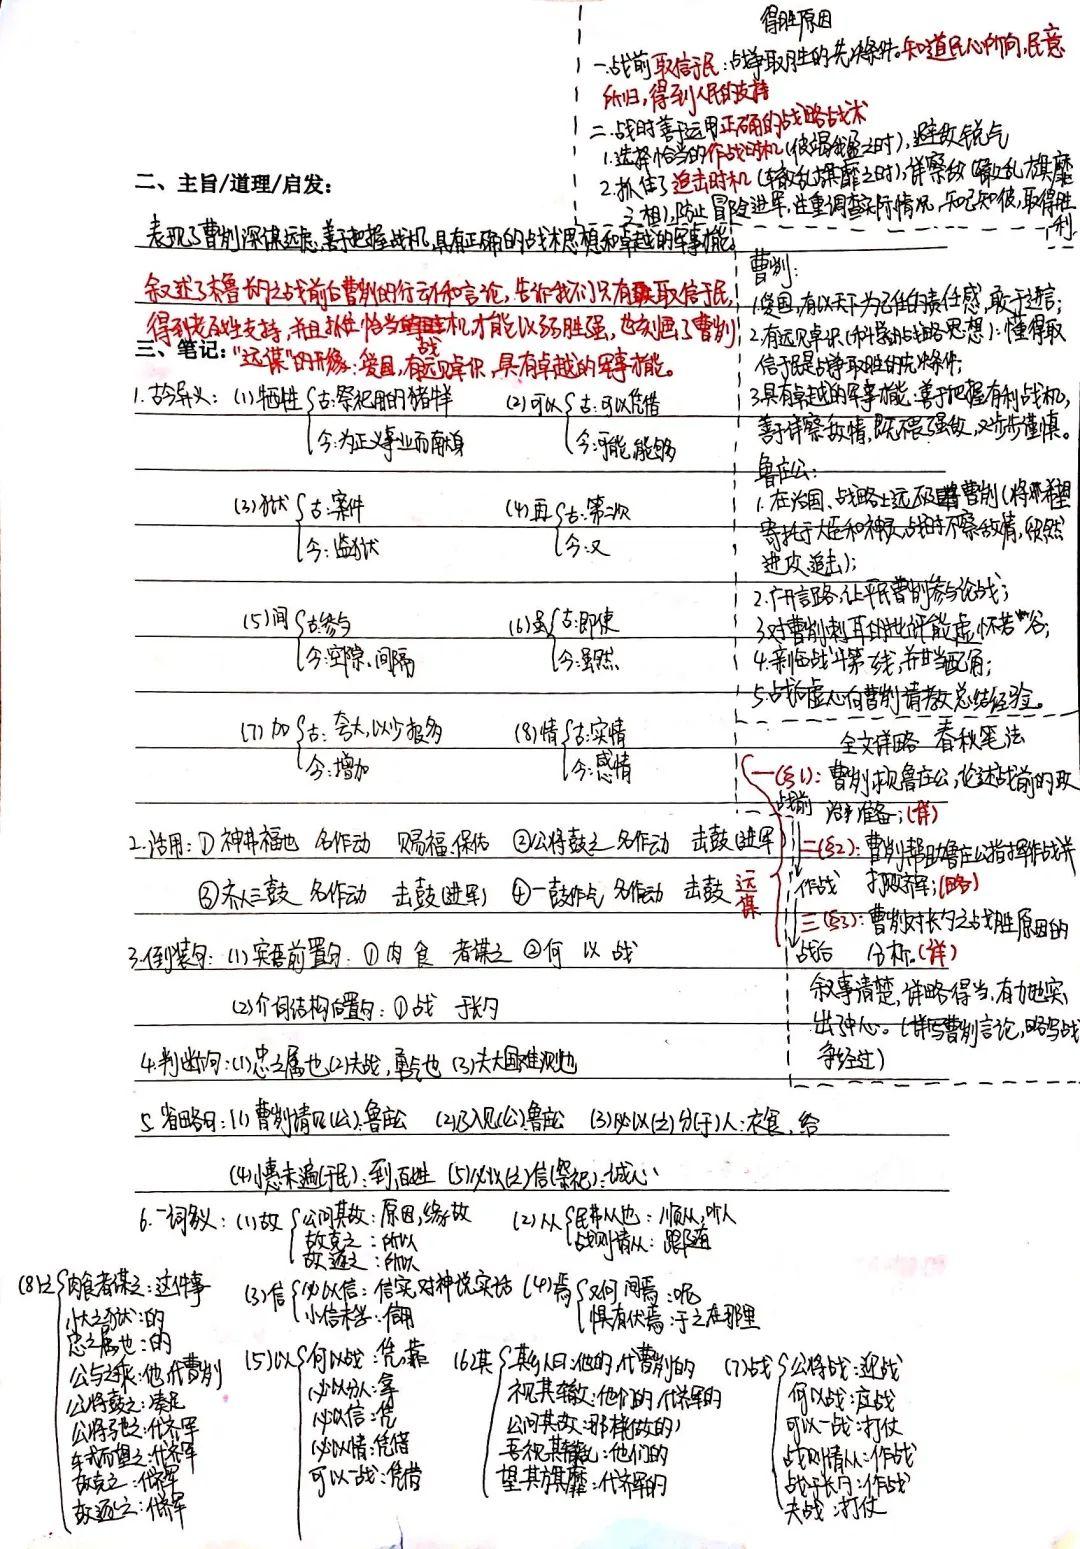 得胜原因
一.战前取信于民:战争取胜的先决条件。知道民心所向,民意
所归,得到人民的支持
二.战时善于运用正确的战略战术
1.选择恰当的作战时机(彼竭我盈之时),避敌锐气
2.抓住了追击时机(辙乱旗靡之时),详察敌(辙乱旗靡
之相),防止冒险进军,注重调查实际情况,知己知彼,取得胜
利
二、主旨/道理/启发:
表现了曹刿深谋远虑,善于把握战机,具有正确的战术思想和卓越的军事才能。
叙述了齐鲁长勺之战前后曹刿的行动和言论,告诉我们只有取信于民,
得到老百姓支持,并且抓住恰当战机才能以弱胜强,也刻画了曹刿
三、笔记:"远谋"的形象:爱国,有远见卓识,具有卓越的军事才能。
曹刿:
1.爱国,有以天下为己任的责任感,敢于进言;
2.有远见卓识(科学的战略思想):懂得取
信于民是战争取胜的先决条件;
3.具有卓越的军事才能:善于把握有利战机,
善于详察敌情,既不畏强敌,又步步谨慎。
鲁庄公:
1.在治国、战略上远不及曹刿(将希望
寄托于大臣和神灵,战时不察敌情,贸然
进攻、追击);
2.广开言路,让平民曹刿参与论战;
3.对曹刿刺耳的批评能虚怀若谷;
4.亲临战斗第一线,并甘当配角;
5.战后虚心向曹刿请教,总结经验。
1.古今异义:(1)牺牲 古:祭祀用的猪牛羊 (2)可以 古:可以凭借
今:为正义事业而献身 今:可能,能够
(3)狱 古:案件 (4)再 古:第二次
今:监狱 今:又
(5)间 古:参与 (6)虽 古:即使
今:空隙、间隔 今:虽然
(7)加 古:夸大,以少报多 (8)情 古:实情
今:增加 今:感情
2.活用:①神弗福也 名作动 赐福,保佑 ②公将鼓之 名作动 击鼓(进军)
③齐人三鼓 名作动 击鼓(进军) ④一鼓作气 名作动 击鼓
3.倒装句:(1)宾语前置句:①肉食者谋之 ②何以战
(2)介词结构后置句:①战于长勺
4.判断句:(1)忠之属也 (2)夫战,勇气也 (3)夫大国,难测也
5.省略句:(1)曹刿请见(公):鲁庄公 (2)乃入见(公):鲁庄公 (3)必以(之)分(于)人:衣食,给
(4)小惠未遍(于民):到,百姓 (5)必以(之)信(祭祀):诚心
全文详略 春秋笔法
战前
一(§1):曹刿求见鲁庄公,论述战前的政
治准备;(详)
作战
二(§2):曹刿帮助鲁庄公指挥作战并
打败齐军;(略)
战后
三(§3):曹刿对长勺之战胜原因的
分析。(详)
远谋
叙事清楚,详略得当,有力地突
出了中心。(详写曹刿言论,略写战
争经过)
6.一词多义:(1)故 公问其故:原因,缘故 (2)从 民弗从也:顺从,听从
故克之:所以 战则请从:跟随
故逐之:所以
(3)信 必以信:信实,对神说实话 (4)焉 又何间焉:呢
小信未孚:信用 惧有伏焉:于之,在那里
(5)以 何以战:凭,靠
必以分人:拿
必以信:凭
必以情:凭借
可以一战:凭借
(6)其 其乡人曰:他的,代曹刿的
视其辙:他们的,代齐军的
公问其故:那样(做的)
吾视其辙乱:他们的
望其旗靡:代齐军的
(7)战 公将战:迎战
何以战:应战
可以一战:打仗
战则请从:作战
战于长勺:作战
夫战:打仗
(8)之 肉食者谋之:这件事
小大之狱:的
忠之属也:的
公与之乘:他,代曹刿
公将鼓之:凑足
公将驰之:代齐军
轼而望之:代齐军
故克之:代齐军
故逐之:代齐军